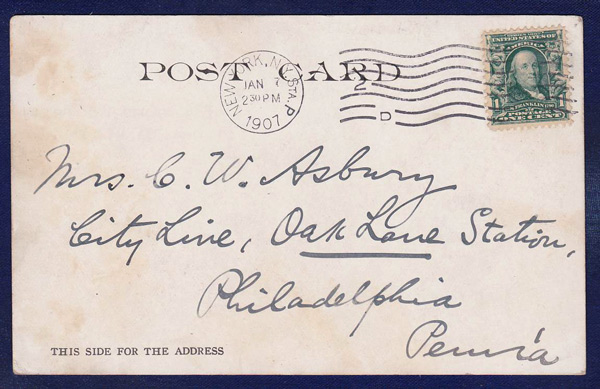 POST CARD
NEW YORK, N.Y. STA. P
JAN 7
2 30 PM
1907
2
D
UNITED STATES OF
AMERICA
FRANKLIN
1 1
POSTAGE
ONE CENT
Mrs. C. W. Asbury
City Line, Oak Lane Station,
Philadelphia
Penn'a
THIS SIDE FOR THE ADDRESS